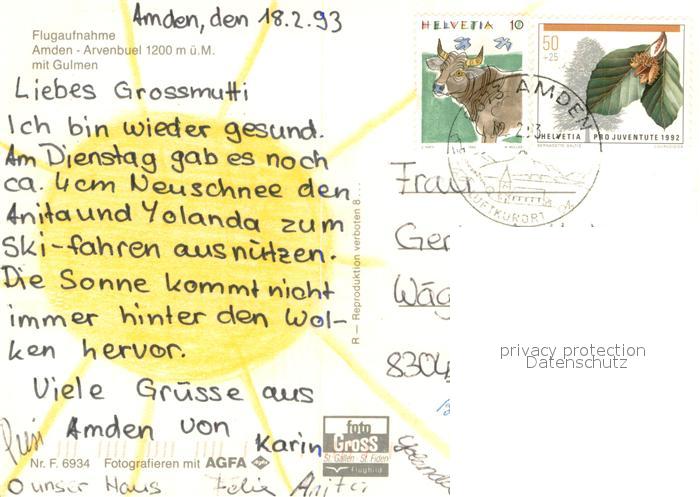 Amden, den 18.2.93
Flugaufnahme
Amden - Arvenbuel 1200 m ü.M.
mit Gulmen
Liebes Grossmutti
Ich bin wieder gesund.
Am Dienstag gab es noch
ca. 4cm Neuschnee den
Anita und Yolanda zum
Ski-fahren ausnützen.
Die Sonne kommt nicht
immer hinter den Wol-
ken hervor.
Viele Grüsse aus
Amden von Karin
Felix Anita
O unser Haus
Nr. F. 6934 Fotografieren mit AGFA
foto
Gross
St. Gallen St. Fiden
Flugbild
R — Reproduktion verboten 8...
HELVETIA 10
50
+25
HELVETIA PRO JUVENTUTE 1992
AMDEN
LUFTKURORT
Frau
Ger
Wäg
8304
privacy protection
Datenschutz